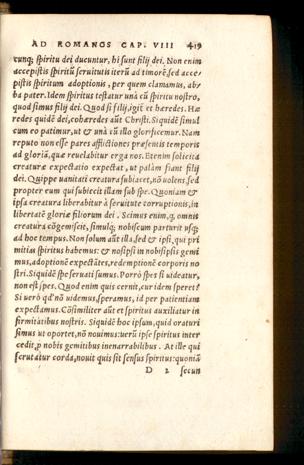 AD ROMANOS CAP. VIII 419
cunq; spiritu dei ducuntur, hi sunt filij dei. Non enim
accepistis spiritũ seruitutis iterũ ad timorẽ, sed acce-
pistis spiritum adoptionis, per quem clamamus, ab-
ba pater. Idem spiritus testatur unà cũ spiritu nostro,
quod simus filij dei. Quod si filij, igit̃ et hæredes. Hæ
redes quidẽ dei, cohæredes aũt Christi. Siquidẽ simul
cum eo patimur, ut & unà cũ illo glorificemur. Nam
reputo non esse pares afflictiones præsentis temporis
ad gloriã, quæ reuelabitur erga nos. Etenim solicita
creaturæ expectatio expectat, ut palàm fiant filij
dei. Quippe uanitati creatura subiacet, nõ uolens, sed
propter eum qui subiecit illam sub spe. Quoniam &
ipsa creatura liberabitur à seruitute corruptionis, in
libertatẽ gloriæ filiorum dei. Scimus enim, q̃ omnis
creatura cõgemiscit, simulq; nobiscum parturit usq;
ad hoc tempus. Non solum aũt illa, sed & ipsi, qui pri
mitias spiritus habemus: & nos ipsi in nobisipsis gemi
mus, adoptionẽ expectãtes, redemptionẽ corporis no
stri. Siquidẽ spe seruati sumus. Porrò spes si uideatur,
non est spes. Quod enim quis cernit, cur idem speret?
Si uerò qd' nõ uidemus, speramus, id per patientiam
expectamus. Cõsimiliter aũt et spiritus auxiliatur in-
firmitatibus nostris. Siquidẽ hoc ipsum, quid oraturi
simus ut oportet, nõ nouimus: uerũ ipse spiritus inter
cedit, p nobis gemitibus inenarrabilibus. At ille qui
scrutatur corda, nouit quis sit sensus spiritus: quoniã
D 2 secun